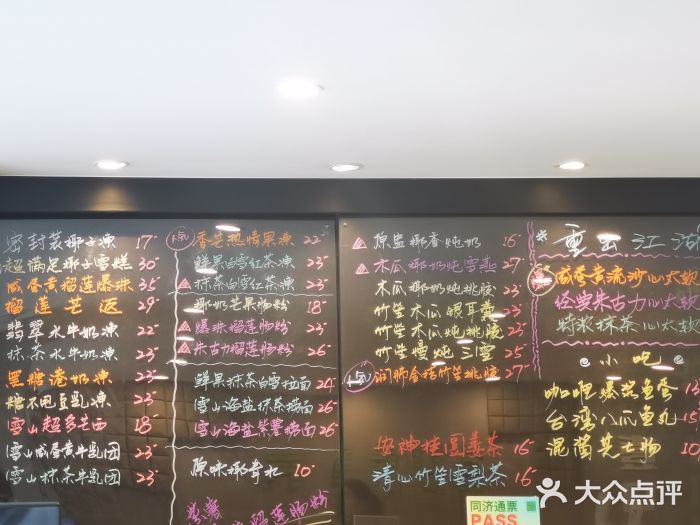 密封装椰子凍 17
超满足椰子雪糕 30
咸蛋黄榴莲爆珠 35
榴莲芒返 29
翡翠水牛奶凍 22
抹茶水牛奶凍 23
黑糖港奶凍 23
糖不甩豆乳凍 23
雪山超多芒西 18
雪山咸蛋黄牛乳团 23
雪山抹茶牛乳团 23
人氣 香芒热情果凍 22
鲜果白雪红茶凍 23
抹茶白雪红茶凍 23
椰奶芒果肠粉 18
爆珠榴莲肠粉 23
朱古力榴莲肠粉 26
鲜果抹茶白雪拉面 24
雪山海盐抹茶捞面 26
雪山海盐紫薯捞面 26
原味椰青水 10
榴莲肠粉
原盅椰香炖奶 16
木瓜椰奶炖雪燕 27
木瓜椰奶炖桃胶 23
竹笙木瓜銀耳羹 23
竹笙木瓜炖桃胶 23
竹笙慢炖三雪 25
人氣 润肺金桔竹笙桃胶 27
安神桂圆姜茶 16
清心竹笙雪梨茶 16
重出江湖
咸蛋黄流沙心太软
经典朱古力心太软
特浓抹茶心太软
小吃
咖喱爆浆鱼蛋
台湾八爪鱼丸
混菌芝士肠 10
同济通票
PASS
大众点评